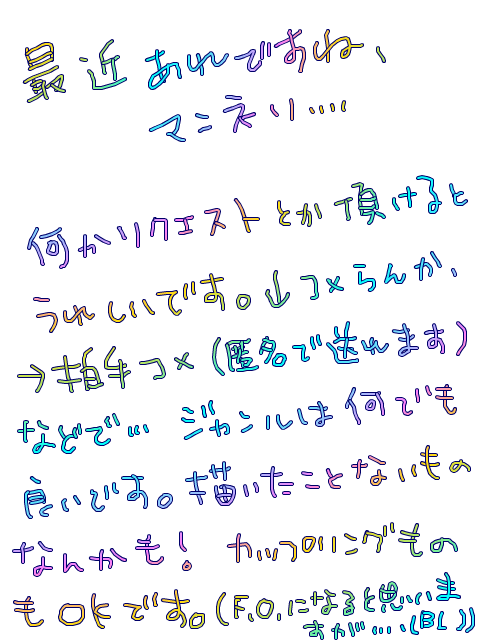 最近あれですね、
マンネリ‥‥
何かリクエストとか頂けると
うれしいです。↓コメらんか、
→拍手コメ(匿名で送れます)
などで… ジャンルは何でも
良いです。描いたことないもの
なんかも! カップリングもの
もOKです。(F.O.になると思いま
すが…(BL))